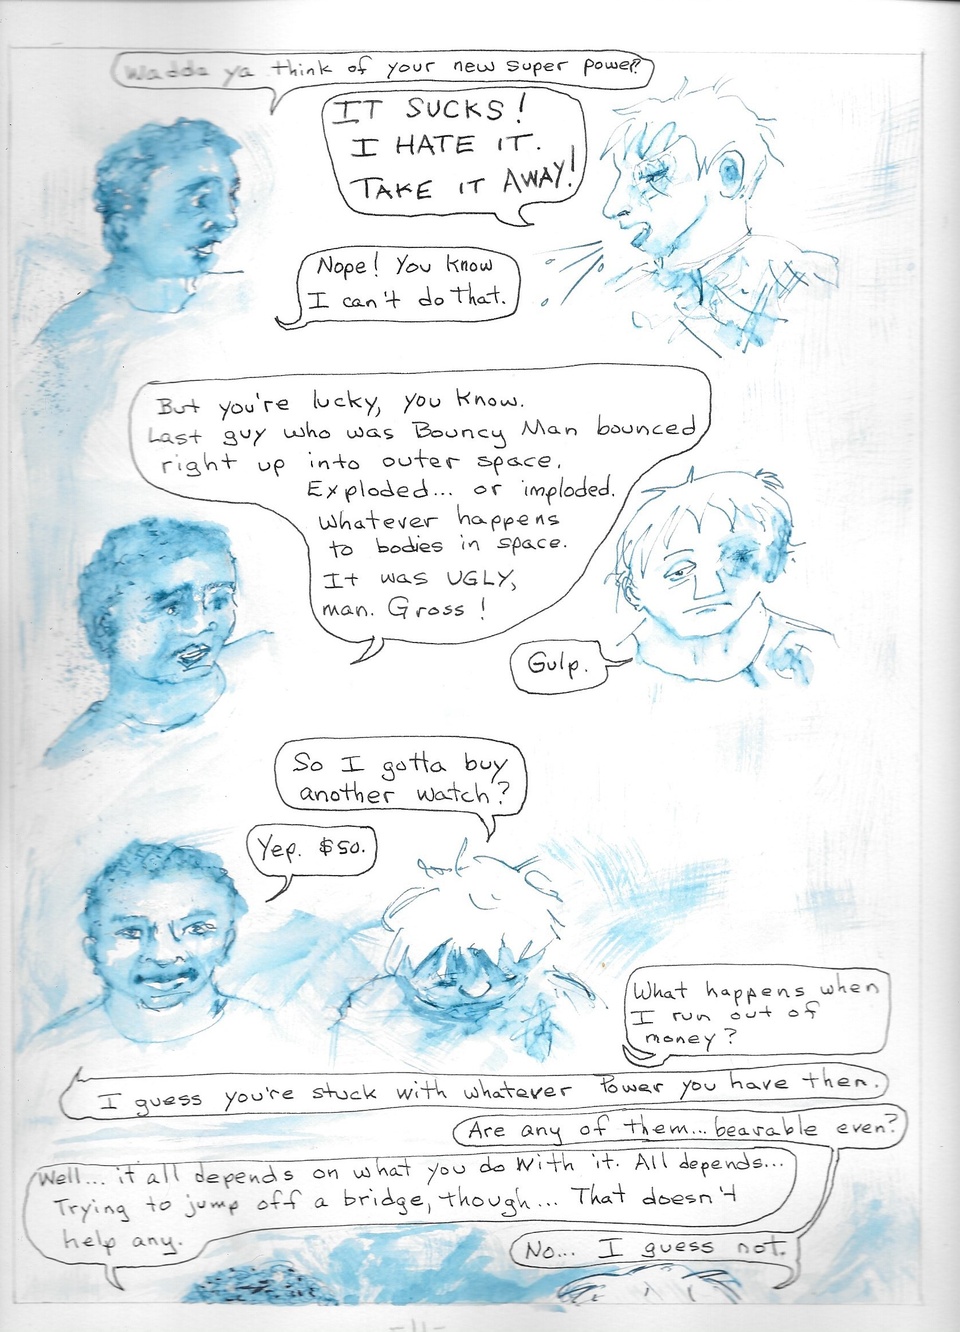 Wadda ya think of your new super power?
IT SUCKS!
I HATE IT.
TAKE IT AWAY!
Nope! You know
I can't do that.
But you're lucky, you know.
Last guy who was Bouncy Man bounced
right up into outer space.
Exploded... or imploded.
Whatever happens
to bodies in space.
It was UGLY,
man. Gross!
Gulp.
So I gotta buy
another watch?
Yep. $50.
What happens when
I run out of
money?
I guess you're stuck with whatever Power you have then.
Are any of them... bearable even?
Well... it all depends on what you do with it. All depends...
Trying to jump off a bridge, though... That doesn't
help any.
No... I guess not.
-11-